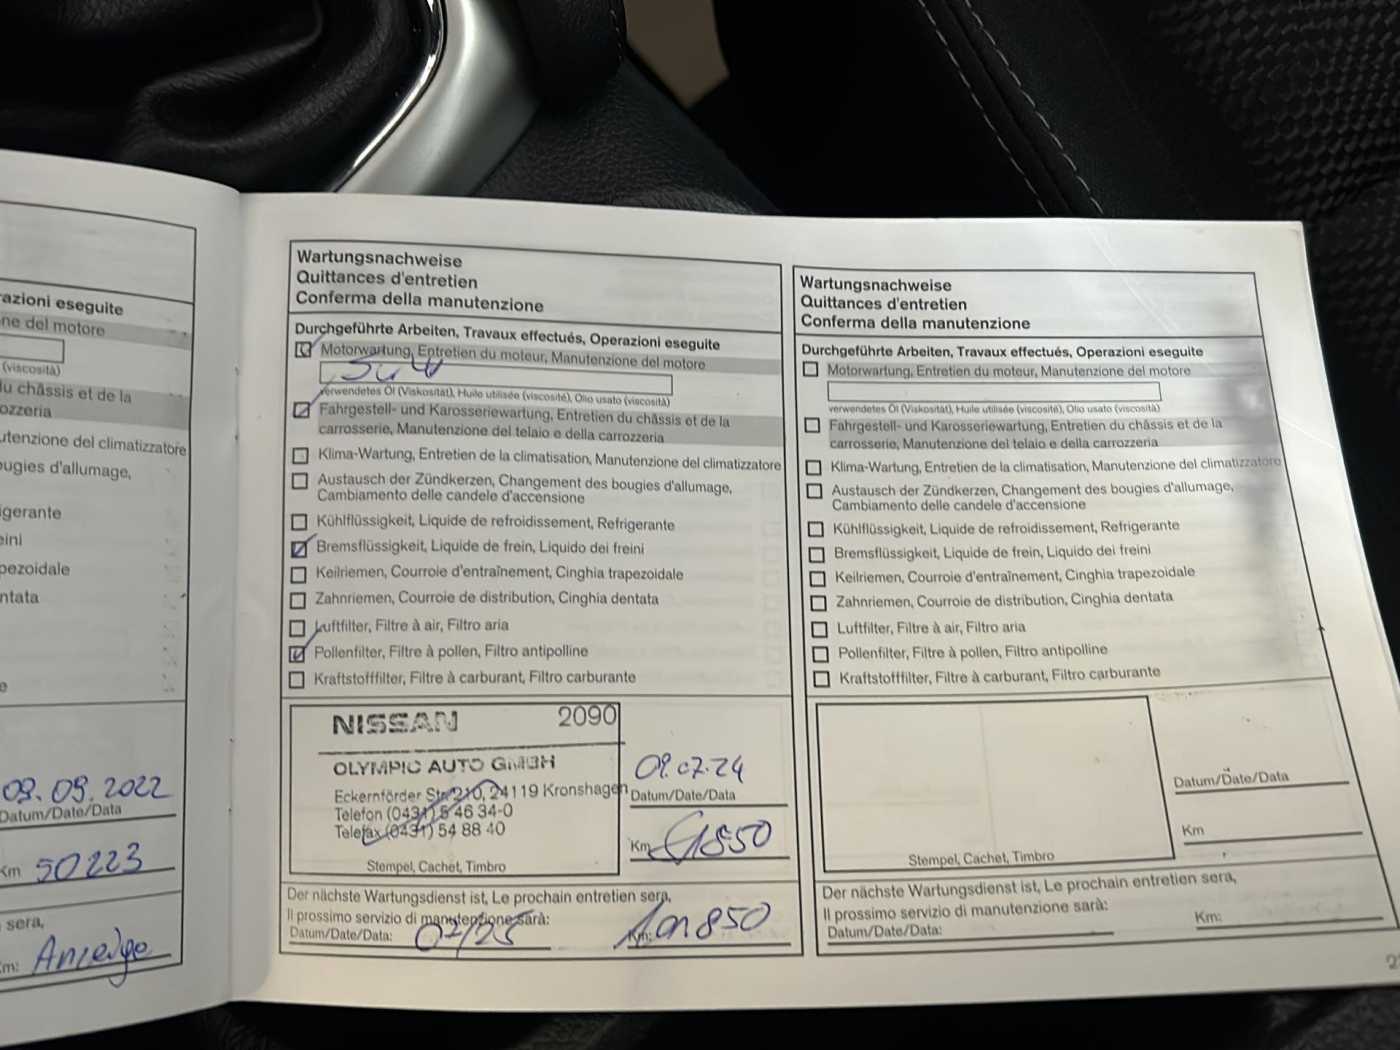 azioni eseguite
ne del motore
(viscosità)
du châssis et de la
ozzeria
utenzione del climatizzatore
ougies d'allumage,
igerante
eini
pezoidale
ntata
e
09.09.2022
Datum/Date/Data
Km 50223
sera,
Km: Anzeige
Wartungsnachweise
Quittances d'entretien
Conferma della manutenzione
Durchgeführte Arbeiten, Travaux effectués, Operazioni eseguite
Motorwartung, Entretien du moteur, Manutenzione del motore
verwendetes Öl (Viskosität), Huile utilisée (viscosité), Olio usato (viscosità)
Fahrgestell- und Karosseriewartung, Entretien du châssis et de la
carrosserie, Manutenzione del telaio e della carrozzeria
Klima-Wartung, Entretien de la climatisation, Manutenzione del climatizzatore
Austausch der Zündkerzen, Changement des bougies d'allumage,
Cambiamento delle candele d'accensione
Kühlflüssigkeit, Liquide de refroidissement, Refrigerante
Bremsflüssigkeit, Liquide de frein, Liquido dei freini
Keilriemen, Courroie d'entraînement, Cinghia trapezoidale
Zahnriemen, Courroie de distribution, Cinghia dentata
Luftfilter, Filtre à air, Filtro aria
Pollenfilter, Filtre à pollen, Filtro antipolline
Kraftstofffilter, Filtre à carburant, Filtro carburante
NISSAN 2090
OLYMPIC AUTO GMBH
Eckernförder Str. 210, 24119 Kronshagen
Telefon (0431) 5 46 34-0
Telefax (0431) 54 88 40
Stempel, Cachet, Timbro
09.07.24
Datum/Date/Data
Km
Der nächste Wartungsdienst ist, Le prochain entretien sera,
Il prossimo servizio di manutenzione sarà:
Datum/Date/Data: 07/25 Km:
Wartungsnachweise
Quittances d'entretien
Conferma della manutenzione
Durchgeführte Arbeiten, Travaux effectués, Operazioni eseguite
Motorwartung, Entretien du moteur, Manutenzione del motore
verwendetes Öl (Viskosität), Huile utilisée (viscosité), Olio usato (viscosità)
Fahrgestell- und Karosseriewartung, Entretien du châssis et de la
carrosserie, Manutenzione del telaio e della carrozzeria
Klima-Wartung, Entretien de la climatisation, Manutenzione del climatizzatore
Austausch der Zündkerzen, Changement des bougies d'allumage,
Cambiamento delle candele d'accensione
Kühlflüssigkeit, Liquide de refroidissement, Refrigerante
Bremsflüssigkeit, Liquide de frein, Liquido dei freini
Keilriemen, Courroie d'entraînement, Cinghia trapezoidale
Zahnriemen, Courroie de distribution, Cinghia dentata
Luftfilter, Filtre à air, Filtro aria
Pollenfilter, Filtre à pollen, Filtro antipolline
Kraftstofffilter, Filtre à carburant, Filtro carburante
Datum/Date/Data
Km
Stempel, Cachet, Timbro
Der nächste Wartungsdienst ist, Le prochain entretien sera,
Il prossimo servizio di manutenzione sarà:
Datum/Date/Data: Km: